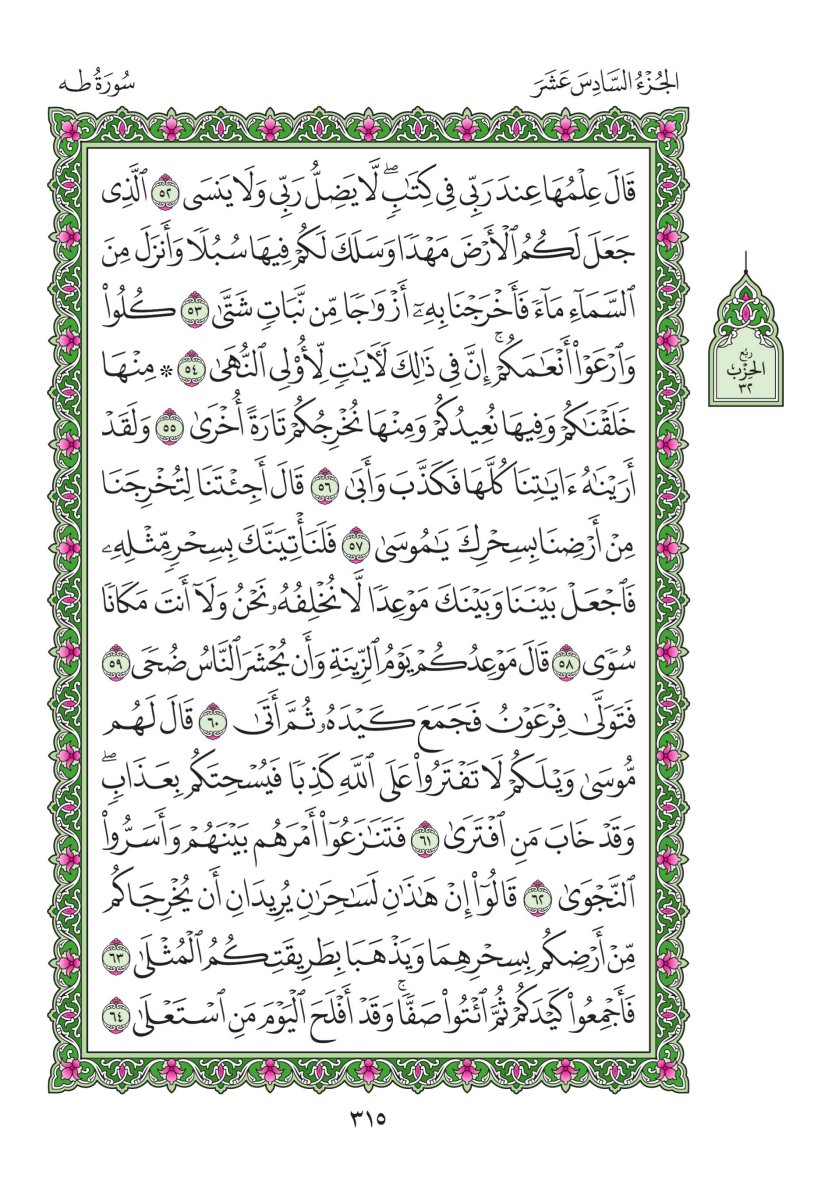 الجُزْءُ السَّادِسَ عَشَرَ
سُورَةُ طه
قَالَ عِلْمُهَا عِندَ رَبِّى فِى كِتَٰبٍۖ لَّا يَضِلُّ رَبِّى وَلَا يَنسَى ٥٢ ٱلَّذِى
جَعَلَ لَكُمُ ٱلْأَرْضَ مَهْدًا وَسَلَكَ لَكُمْ فِيهَا سُبُلًا وَأَنزَلَ مِنَ
ٱلسَّمَآءِ مَآءً فَأَخْرَجْنَا بِهِۦٓ أَزْوَٰجًا مِّن نَّبَاتٍ شَتَّىٰ ٥٣ كُلُوا۟
وَٱرْعَوْا۟ أَنْعَٰمَكُمْۗ إِنَّ فِى ذَٰلِكَ لَءَايَٰتٍ لِّأُو۟لِى ٱلنُّهَىٰ ٥٤ ۞ مِنْهَا
خَلَقْنَٰكُمْ وَفِيهَا نُعِيدُكُمْ وَمِنْهَا نُخْرِجُكُمْ تَارَةً أُخْرَىٰ ٥٥ وَلَقَدْ
أَرَيْنَٰهُ ءَايَٰتِنَا كُلَّهَا فَكَذَّبَ وَأَبَىٰ ٥٦ قَالَ أَجِئْتَنَا لِتُخْرِجَنَا
مِنْ أَرْضِنَا بِسِحْرِكَ يَٰمُوسَىٰ ٥٧ فَلَنَأْتِيَنَّكَ بِسِحْرٍ مِّثْلِهِۦ
فَٱجْعَلْ بَيْنَنَا وَبَيْنَكَ مَوْعِدًا لَّا نُخْلِفُهُۥ نَحْنُ وَلَآ أَنتَ مَكَانًا
سُوًى ٥٨ قَالَ مَوْعِدُكُمْ يَوْمُ ٱلزِّينَةِ وَأَن يُحْشَرَ ٱلنَّاسُ ضُحًى ٥٩
فَتَوَلَّىٰ فِرْعَوْنُ فَجَمَعَ كَيْدَهُۥ ثُمَّ أَتَىٰ ٦٠ قَالَ لَهُم
مُّوسَىٰ وَيْلَكُمْ لَا تَفْتَرُوا۟ عَلَى ٱللَّهِ كَذِبًا فَيُسْحِتَكُم بِعَذَابٍۖ
وَقَدْ خَابَ مَنِ ٱفْتَرَىٰ ٦١ فَتَنَٰزَعُوٓا۟ أَمْرَهُم بَيْنَهُمْ وَأَسَرُّوا۟
ٱلنَّجْوَىٰ ٦٢ قَالُوٓا۟ إِنْ هَٰذَٰنِ لَسَٰحِرَٰنِ يُرِيدَانِ أَن يُخْرِجَاكُم
مِّنْ أَرْضِكُم بِسِحْرِهِمَا وَيَذْهَبَا بِطَرِيقَتِكُمُ ٱلْمُثْلَىٰ ٦٣
فَأَجْمِعُوا۟ كَيْدَكُمْ ثُمَّ ٱئْتُوا۟ صَفًّاۚ وَقَدْ أَفْلَحَ ٱلْيَوْمَ مَنِ ٱسْتَعْلَىٰ ٦٤
ربع
الحزب
٣٢
٣١٥